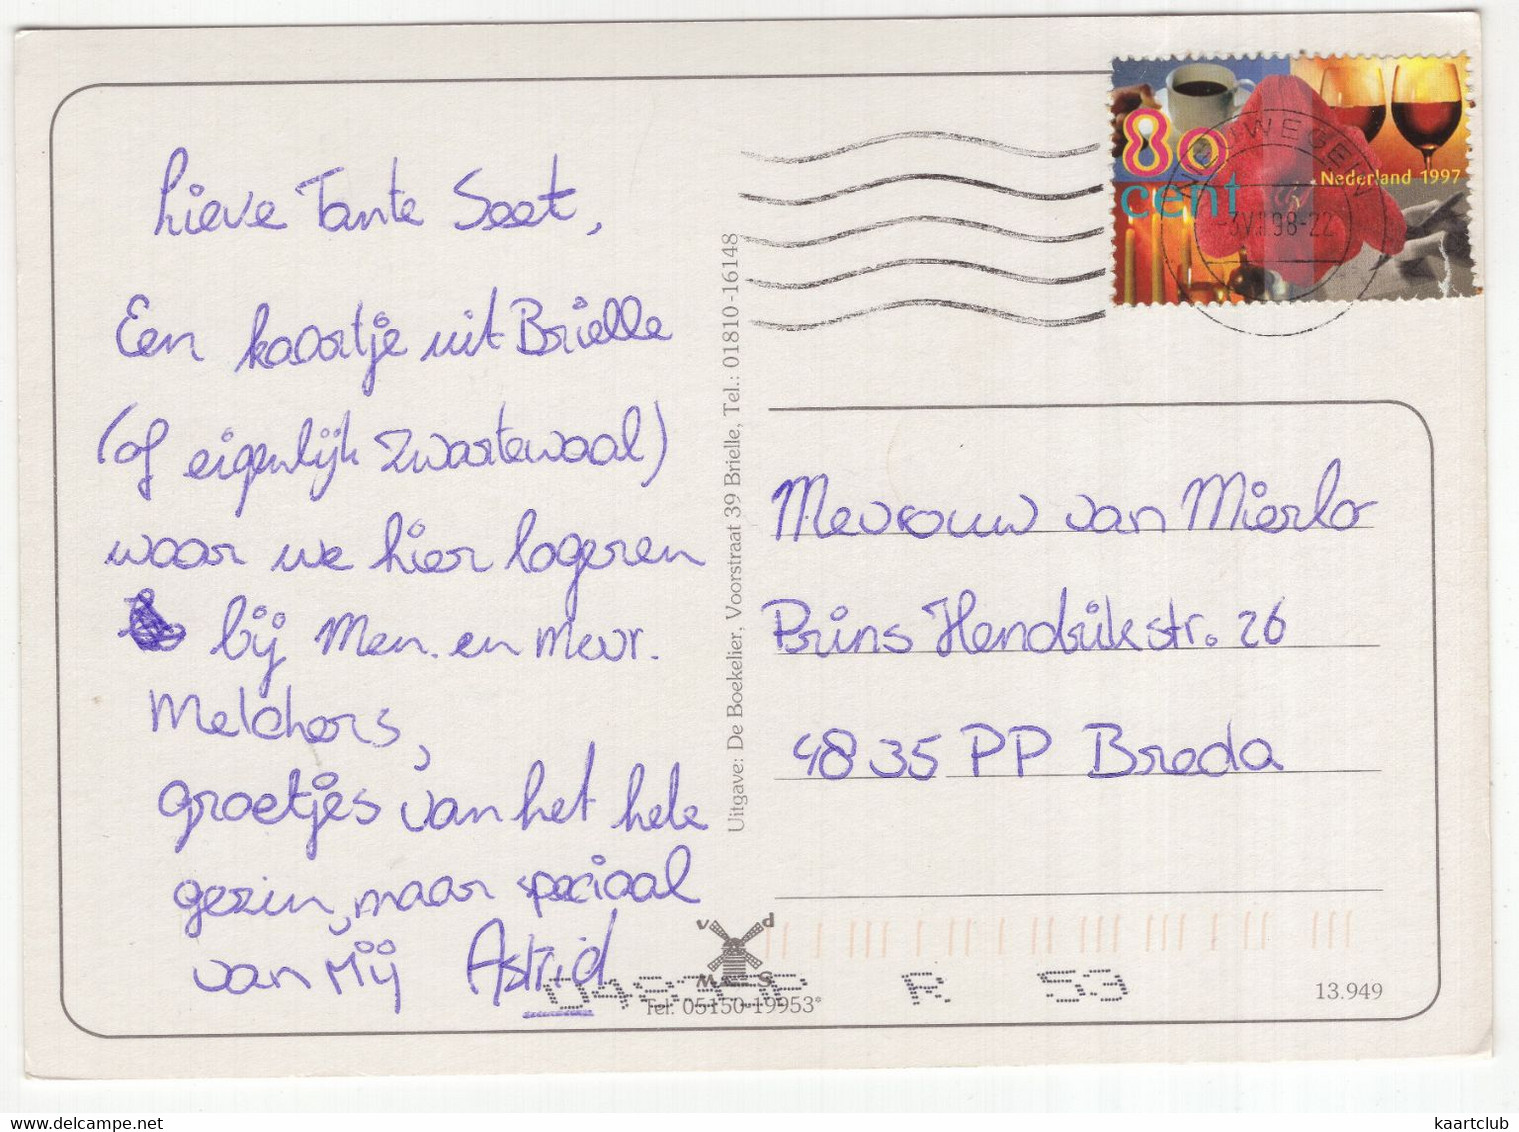 Lieve Tante Seet,
Een kaartje uit Brielle
(of eigenlijk Zwartewaal)
waar we hier logeren
bij Men. en Mevr.
Melchers,
groetjes van het hele
gezin, maar speciaal
van Mij Astrid
Uitgave: De Boekelier, Voorstraat 39 Brielle, Tel.: 01810-16148
v d
M S
Tel. 05150-19953*
80
cent
Nederland 1997
NIEUWEGEIN
-3.VII.98-22
Mevrouw van Mierlo
Prins Hendrikstr. 26
4835 PP Breda
R 53
13.949
kaartclub